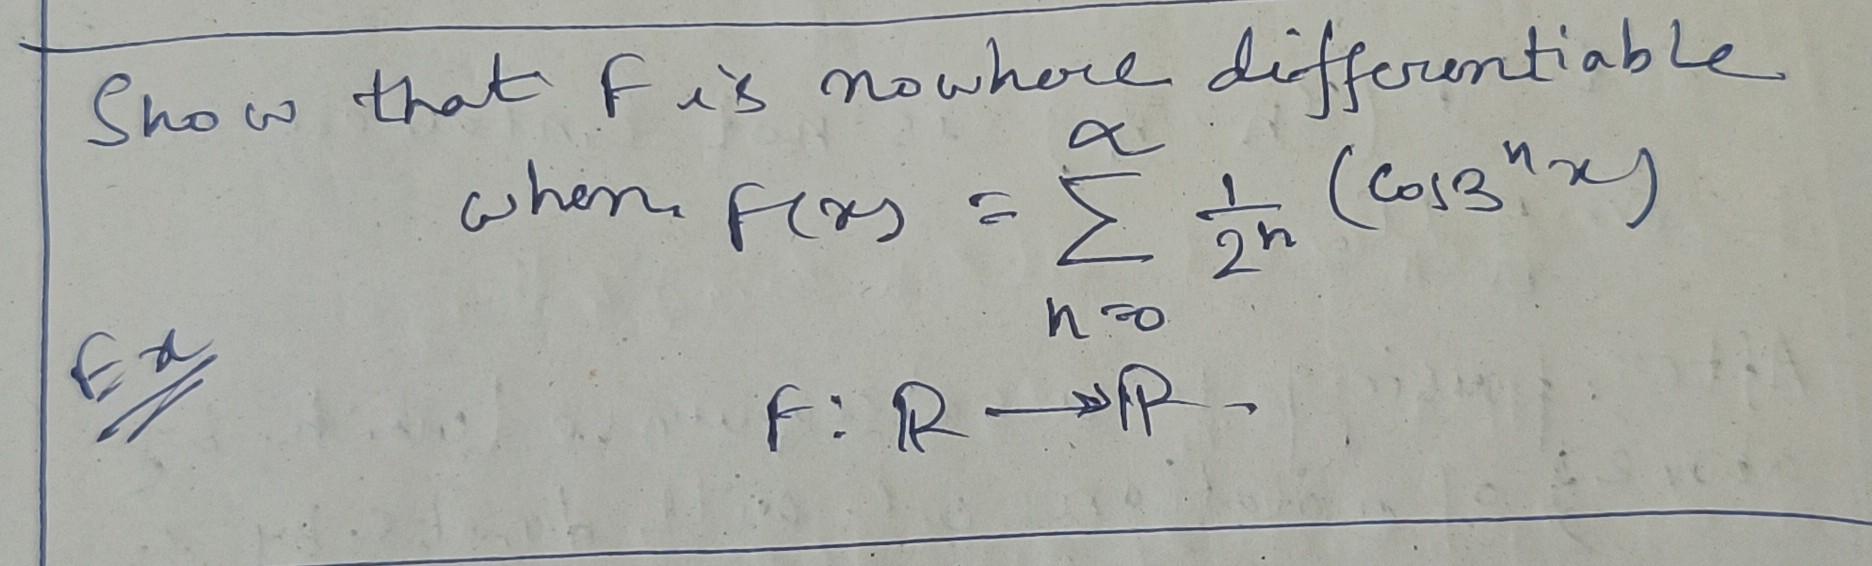 Show that f is nowhere differentiable
when f(x) = ∑_{n=0}^{∝} 1/2^n (cos3^n x)
Ex
f: ℝ → ℝ.